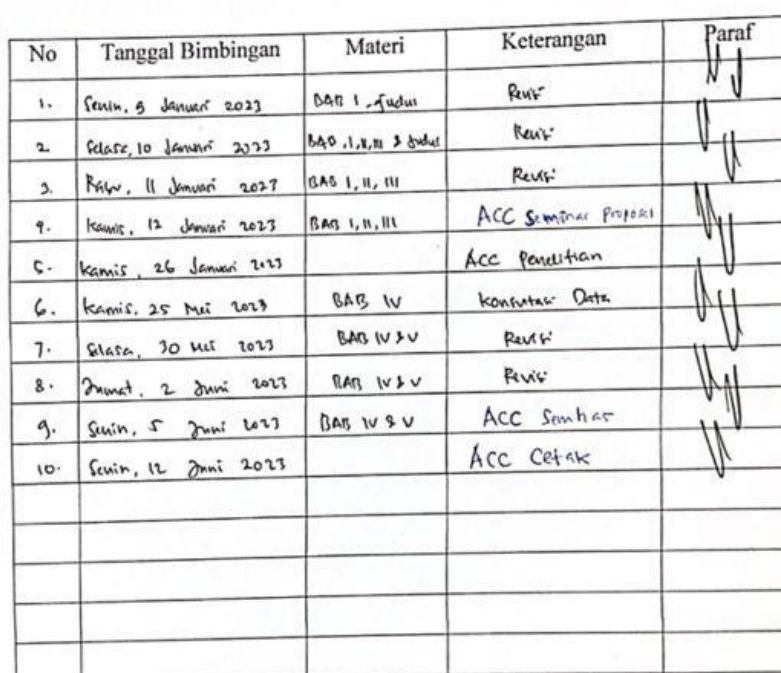 No Tanggal Bimbingan Materi Keterangan Paraf
1. Senin, 9 Januari 2023 BAB I, Judul Revisi
2. Selasa, 10 Januari 2023 BAB, I, II, III & Judul Revisi
3. Rabu, 11 Januari 2023 BAB I, II, III Revisi
4. Kamis, 12 Januari 2023 BAB I, II, III ACC Seminar Proposal
5. Kamis, 26 Januari 2023 ACC Penelitian
6. Kamis, 25 Mei 2023 BAB IV Konsultasi Data
7. Selasa, 30 Mei 2023 BAB IV & V Revisi
8. Jumat, 2 Juni 2023 BAB IV & V Revisi
9. Senin, 5 Juni 2023 BAB IV & V ACC Semhas
10. Senin, 12 Juni 2023 ACC Cetak